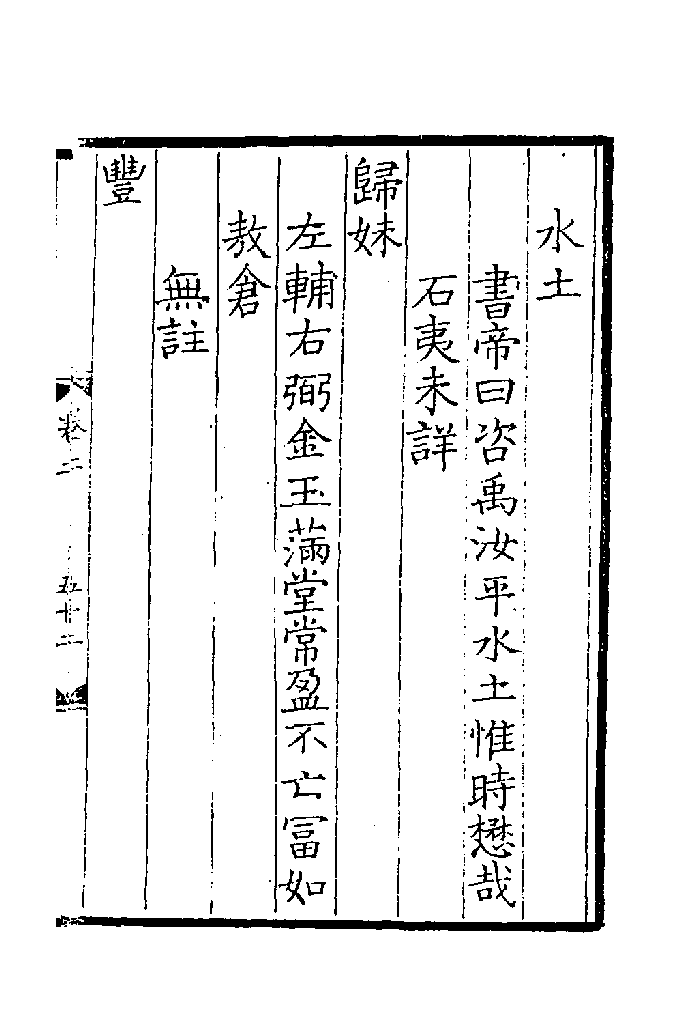 水土
書帝曰咨禹汝平水土惟時懋哉
石夷未詳
歸妹
左輔右弼金玉滿堂常盈不亡冨如
敖倉
無註
豐
卷二
五十二